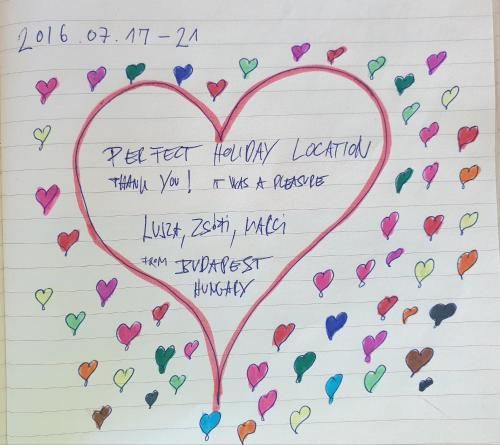 2016.07.17-21
PERFECT HOLIDAY LOCATION
THANK YOU! IT WAS A PLEASURE
LUJZA, ZSÓFI, MARCI
FROM BUDAPEST
HUNGARY